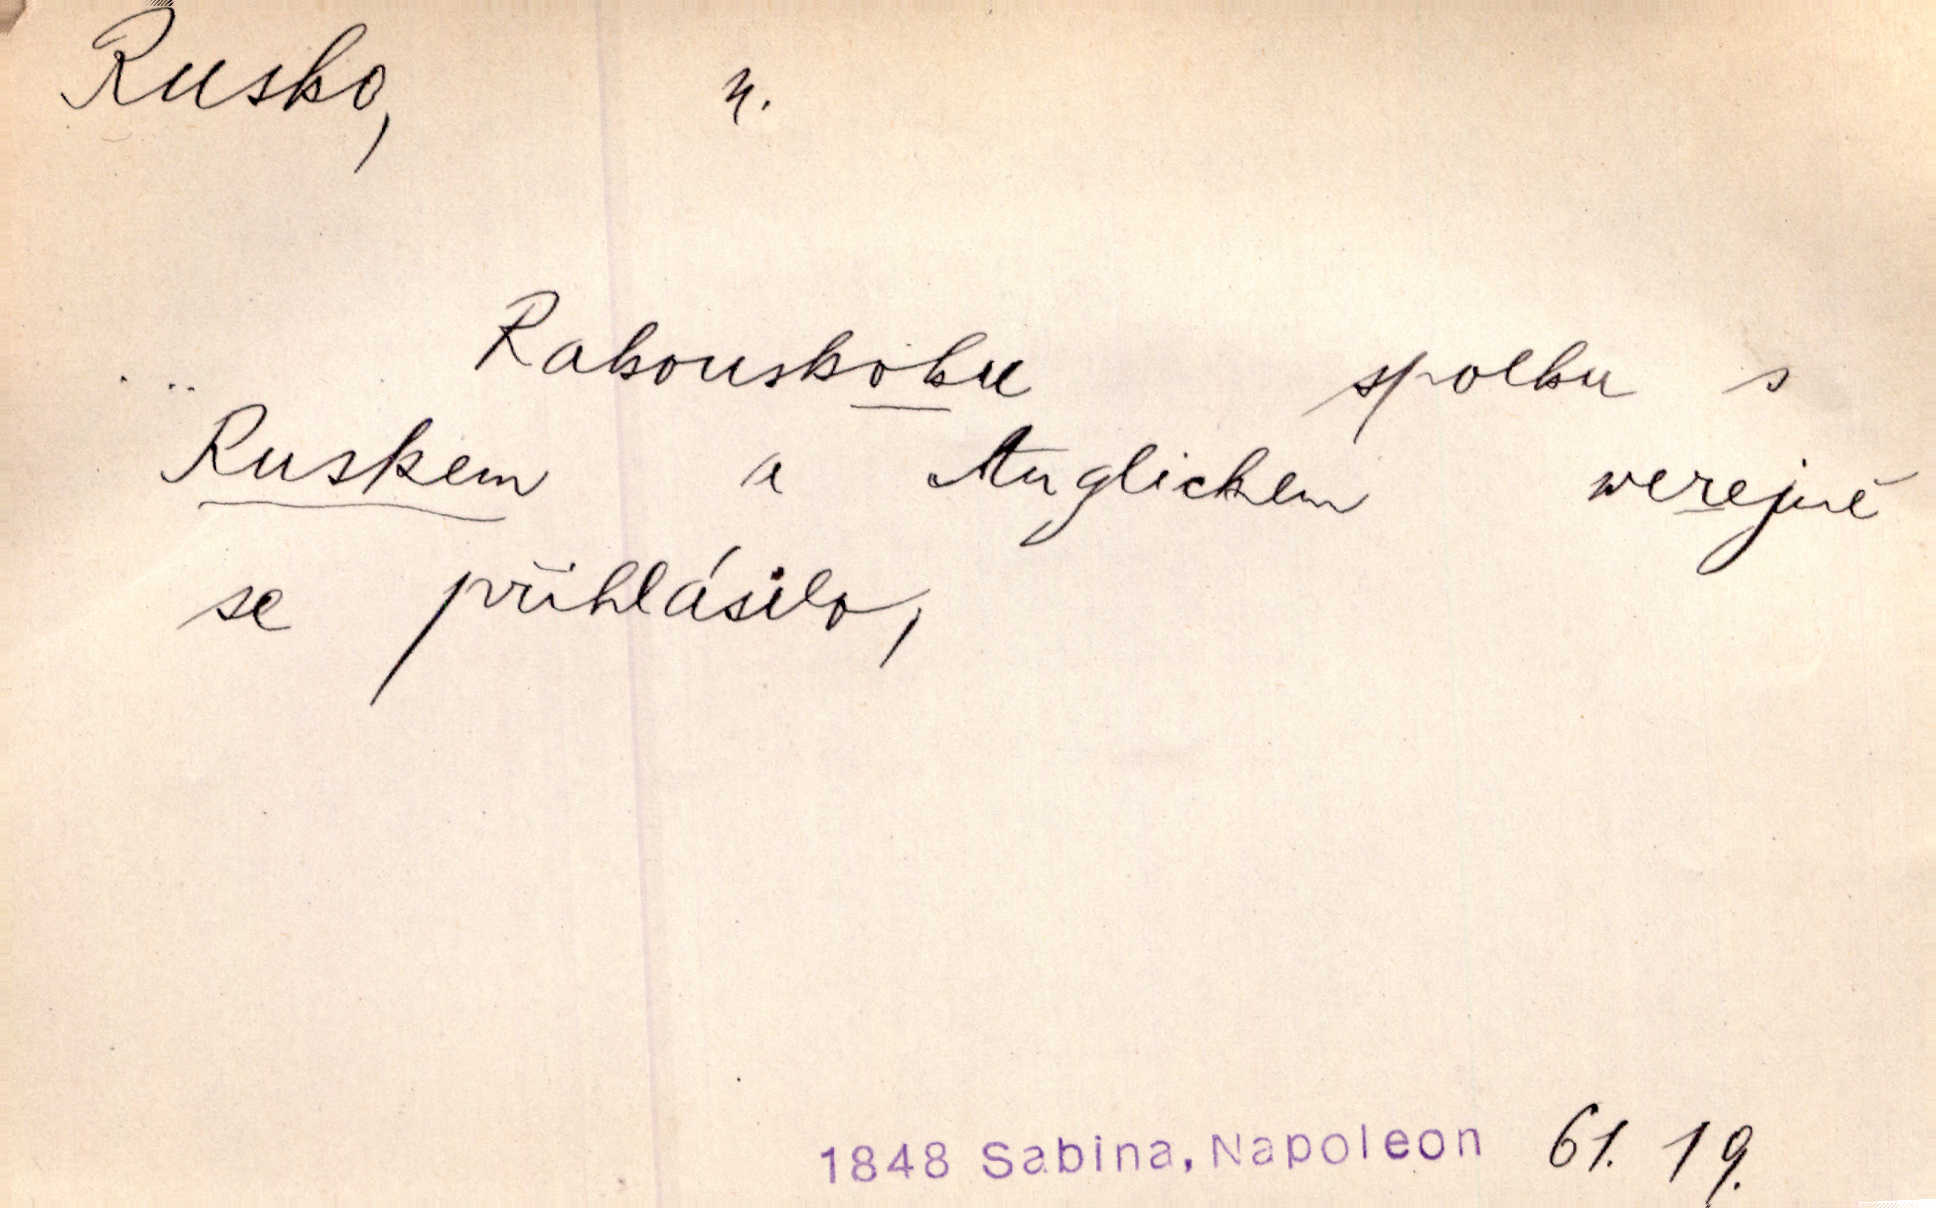 Rusko, n.
... Rakouskoku spolku s
Ruskem a Anglickem werejně
se přihlásilo,
1848 Sabina, Napoleon 61. 19.